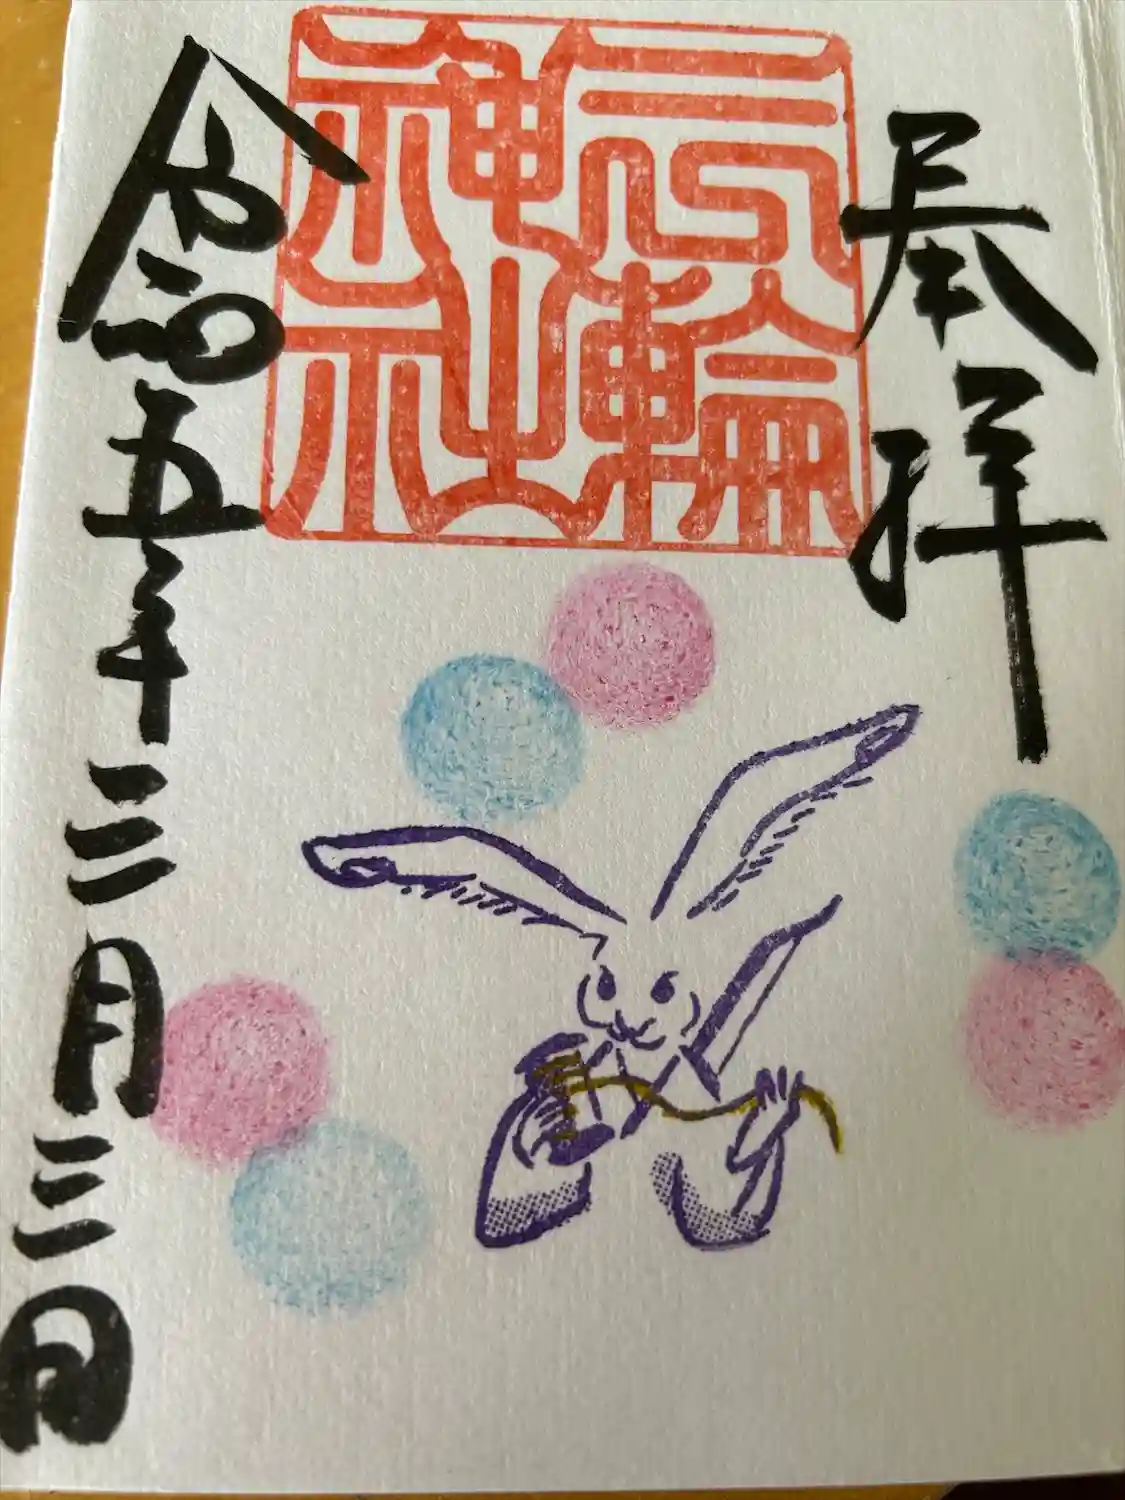 奉拝
三輪
神社
令和五年三月三日